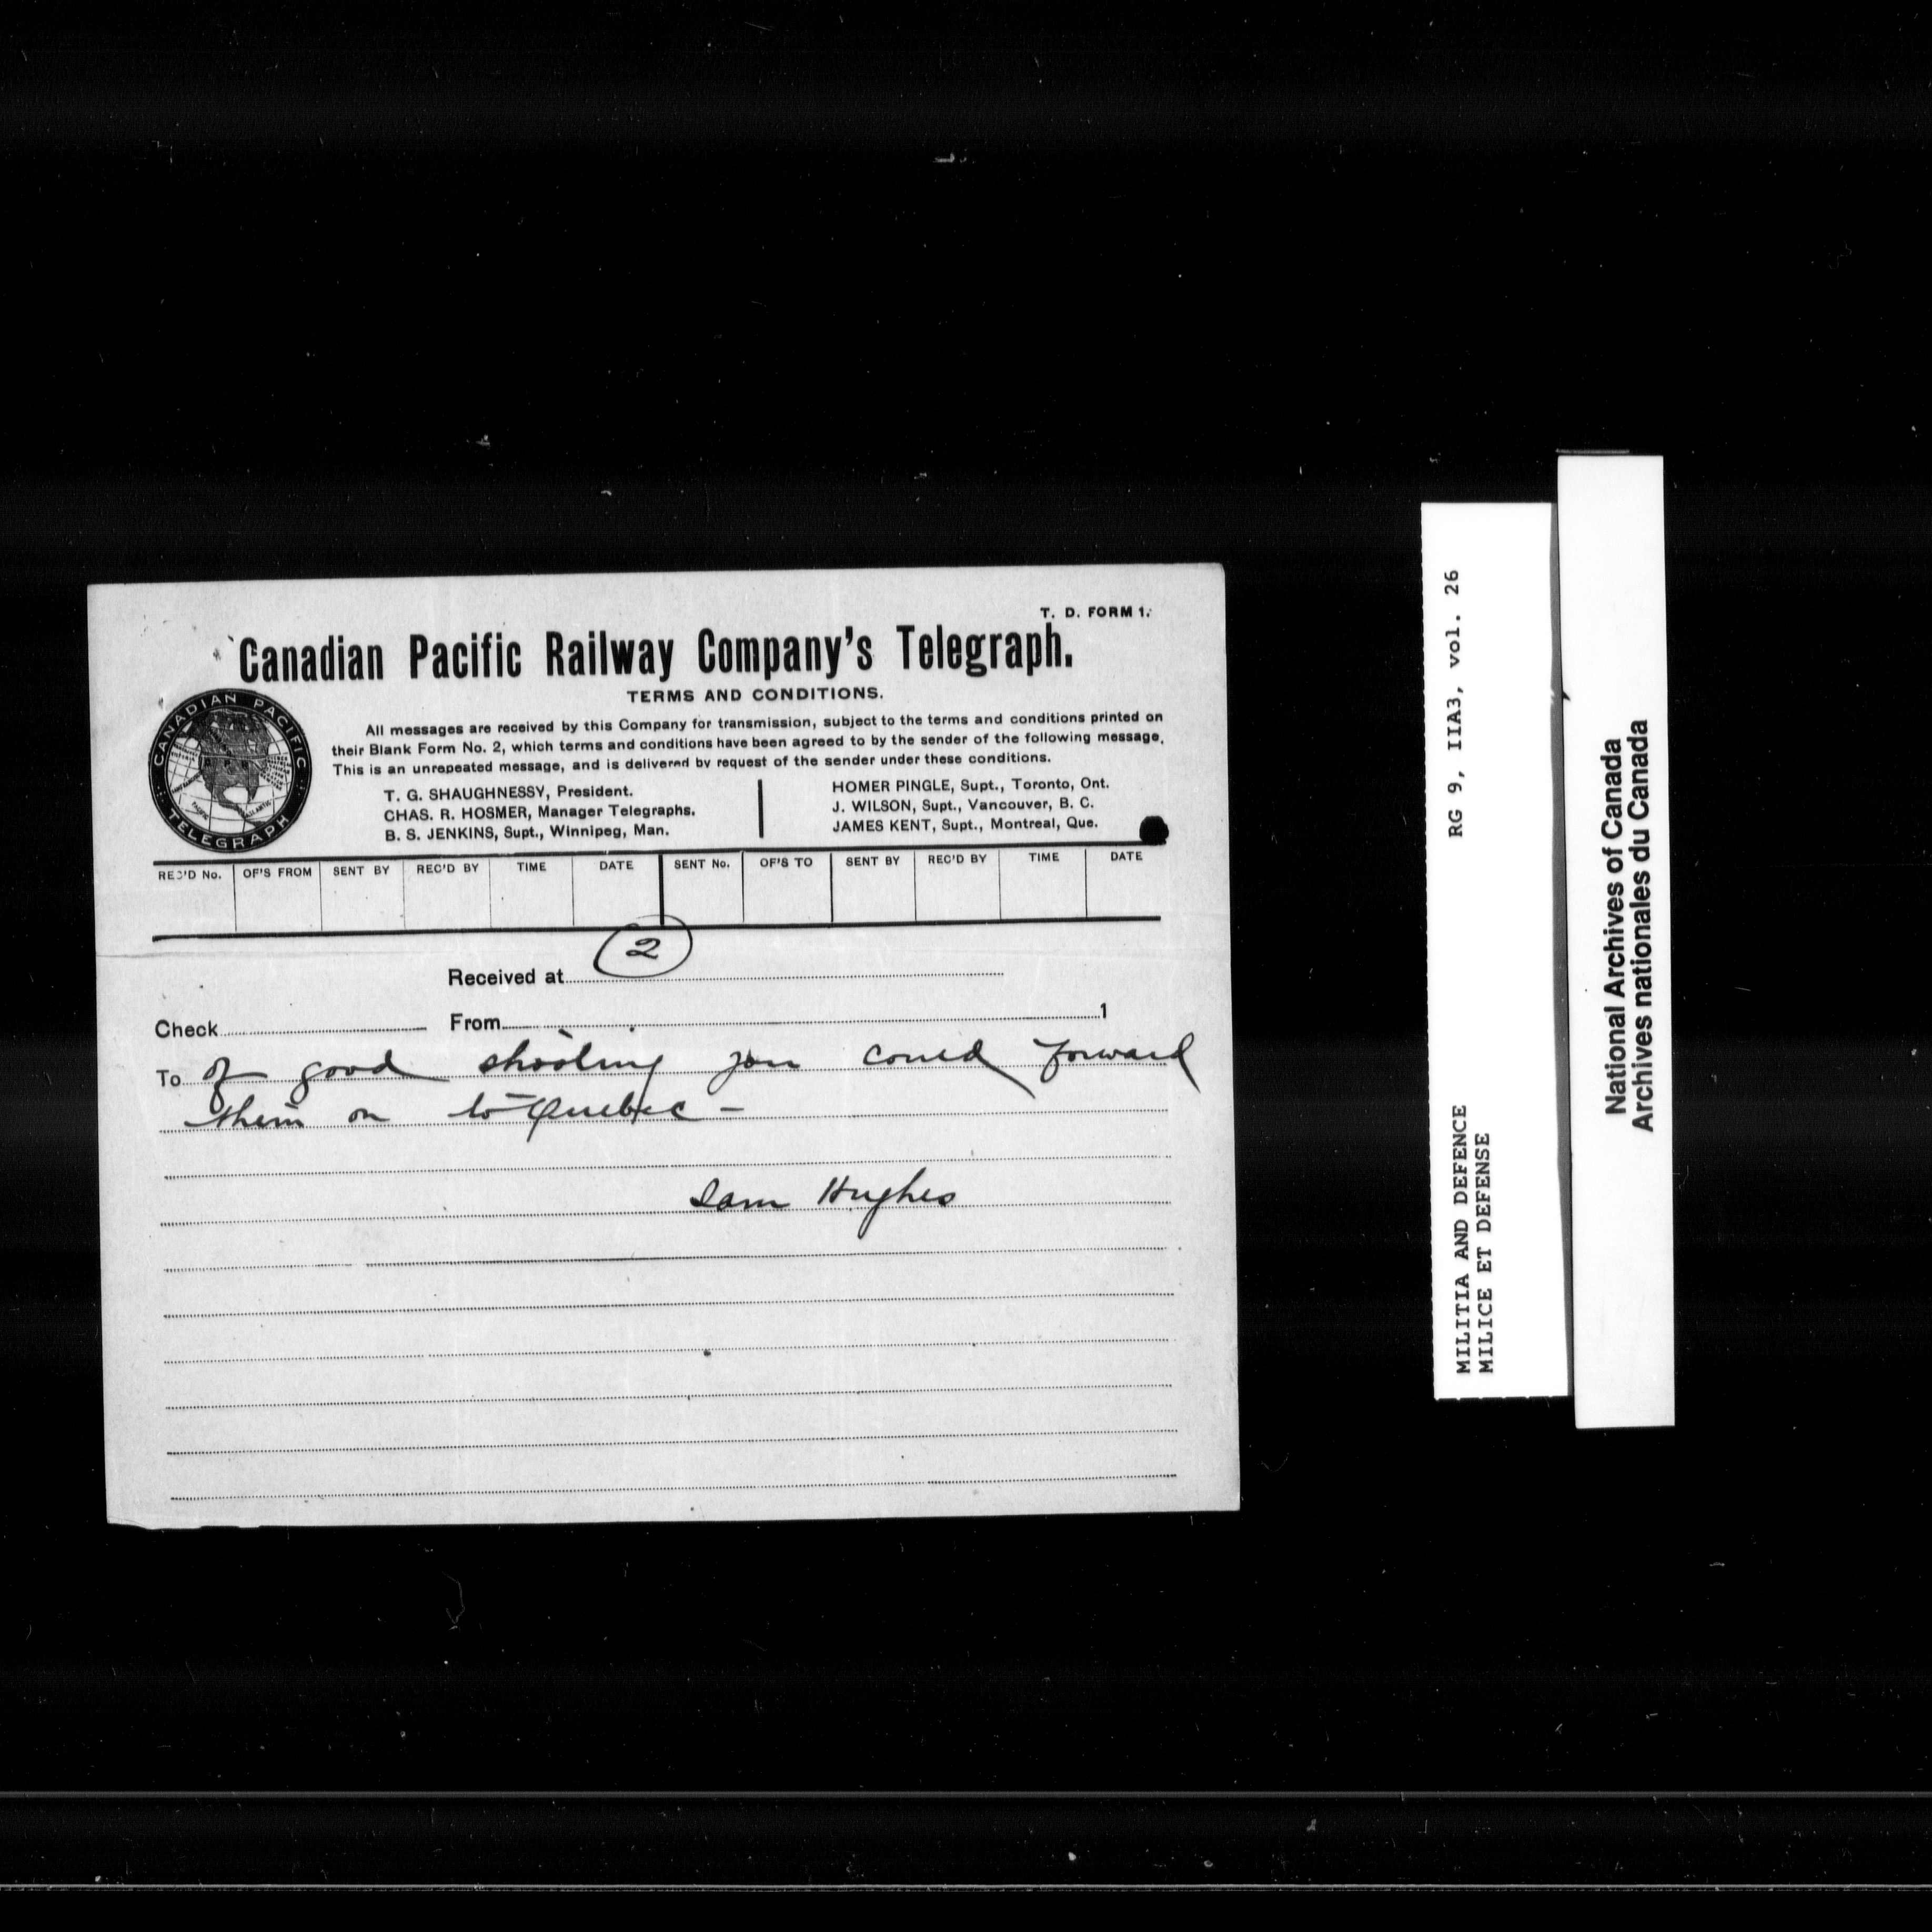 T. D. FORM 1.
Canadian Pacific Railway Company's Telegraph.
TERMS AND CONDITIONS.
All messages are received by this Company for transmission, subject to the terms and conditions printed on
their Blank Form No. 2, which terms and conditions have been agreed to by the sender of the following message.
This is an unrepeated message, and is delivered by request of the sender under these conditions.
CANADIAN PACIFIC
TELEGRAPH
T. G. SHAUGHNESSY, President.
CHAS. R. HOSMER, Manager Telegraphs.
B. S. JENKINS, Supt., Winnipeg, Man.
HOMER PINGLE, Supt., Toronto, Ont.
J. WILSON, Supt., Vancouver, B. C.
JAMES KENT, Supt., Montreal, Que.
REC'D No. OF'S FROM SENT BY REC'D BY TIME DATE SENT No. OF'S TO SENT BY REC'D BY TIME DATE
2
Received at
Check From 1
To of good shooting you could forward
them on to Quebec -
Sam Hughes
MILITIA AND DEFENCE RG 9, IIA3, vol. 26
MILICE ET DEFENSE
National Archives of Canada
Archives nationales du Canada